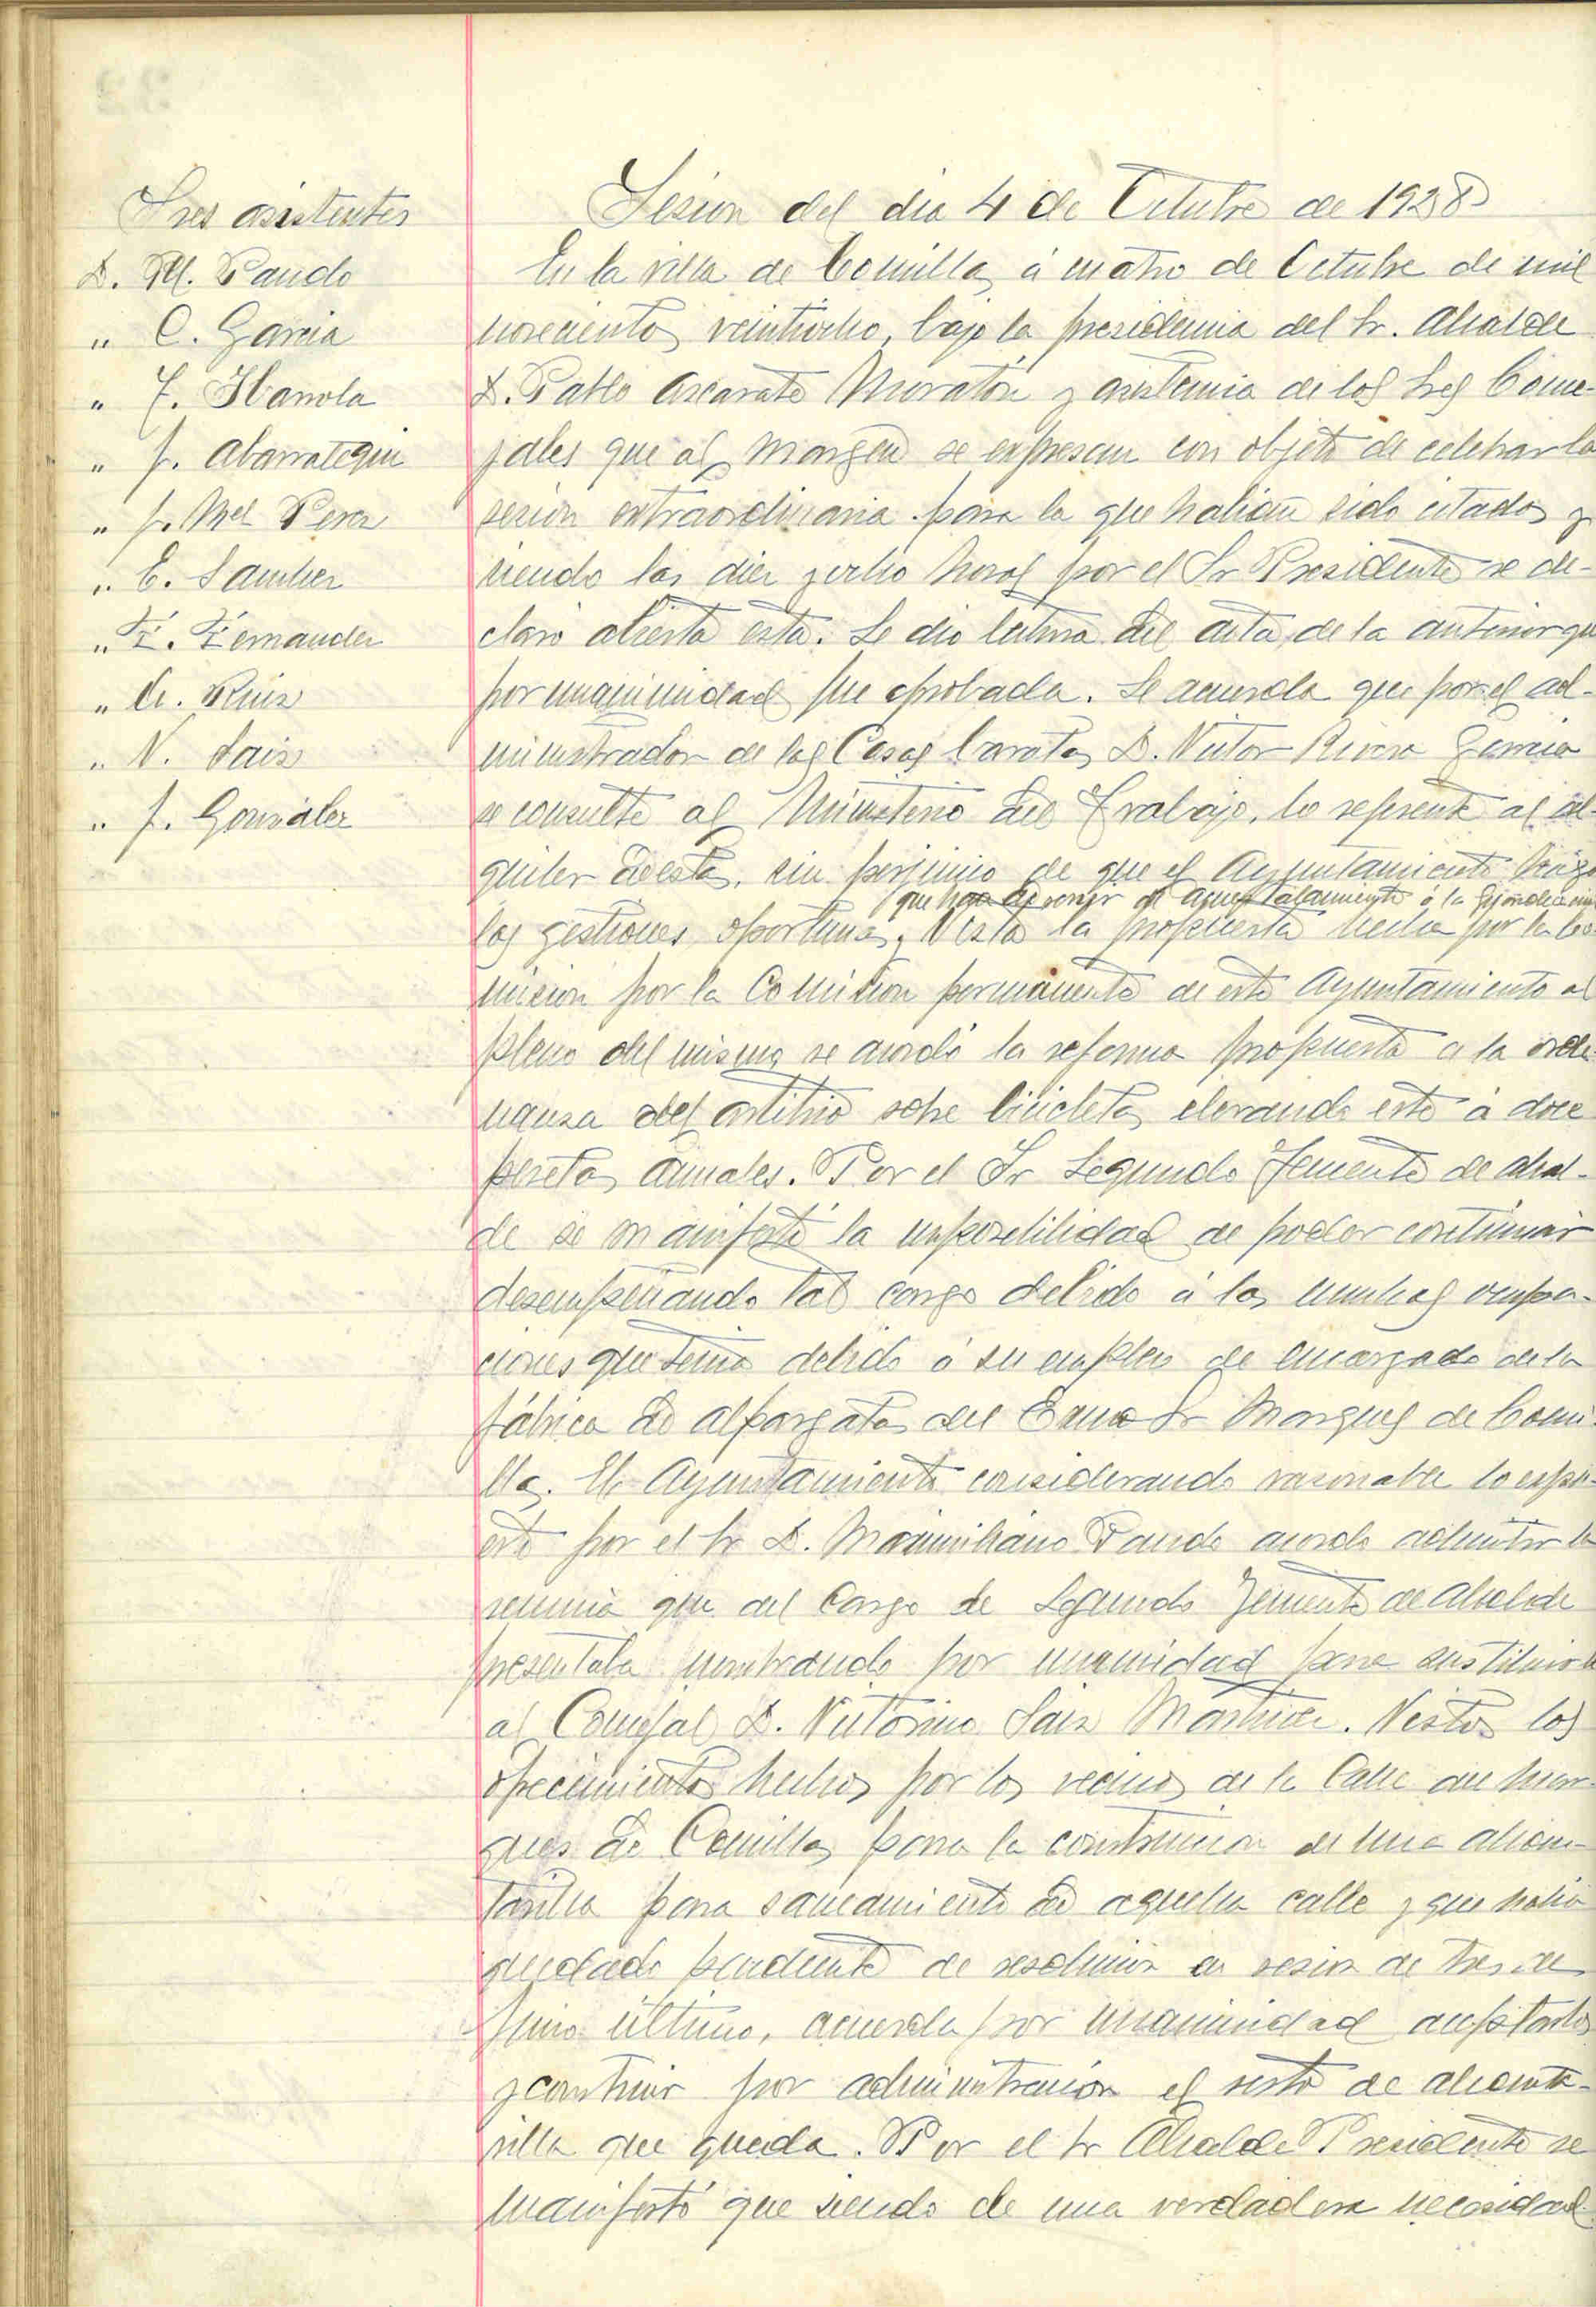 Sres asistentes
D. M. Pando
" C. Garcia
" F. Llanola
" J. Abarrategui
" J. Mel Perez
" E. Sanchez
" F. Fernandez
" A. Ruiz
" N. Saiz
" J. González
Sesion del dia 4 de Octubre de 1928
En la villa de Comillas á cuatro de Octubre de mil
novecientos veintiocho, bajo la presidencia del Sr. Alcalde
D. Pablo Ascarate Moratón y asistencia de los Sres Conce-
jales que al margen se expresan con objeto de celebrar la
sesion extraordinaria para la que habian sido citados y
siendo las diez y ocho horas por el Sr Presidente se de-
claró abierta esta. Se dio lectura del acta de la anterior que
por unanimidad fue aprobada. Se acuerda que por el ad-
ministrador de las Casas baratas D. Victor Rivero Garcia
se consulte al Ministerio del Trabajo, lo referente al al-
quiler de estas, sin perjuicio de que el Ayuntamiento haga
que de Ayuntamiento á la
las gestiones oportunas. Vista la propuesta hecha por la Co-
mision por la Comision permanente de este Ayuntamiento al
pleno del mismo se acordó la reforma propuesta a la orde-
nanza del arbitrio sobre bicicletas elevando este á doce
pesetas anuales. Por el Sr Segundo Teniente de Alcal-
de se manifestó la imposibilidad de poder continuar
desempeñando tal cargo debido á las muchas ocupa-
ciones que tenia debido á su empleo de encargado de la
fábrica de alpargatas del Exmo Sr Marques de Comi-
llas. El Ayuntamiento considerando razonable lo expu-
esto por el Sr D. Maximiliano Pando acordo admitir la
renuncia que del cargo de Segundo Teniente de Alcalde
presentaba nombrando por unanimidad para sustituirle
al Concejal D. Victorino Saiz Martinez. Vistos los
ofrecimientos hechos por los vecinos de la Calle de Mar-
ques de Comillas para la construccion de una alcan-
tarilla para saneamiento de aquella calle y que habia
quedado pendiente de resolucion en sesion de tres de
Junio último, acuerda por unanimidad aceptarlos
y construir por administracion el resto de alcanta-
rilla que queda. Por el Sr Alcalde Presidente se
manifestó que siendo de una verdadera necesidad